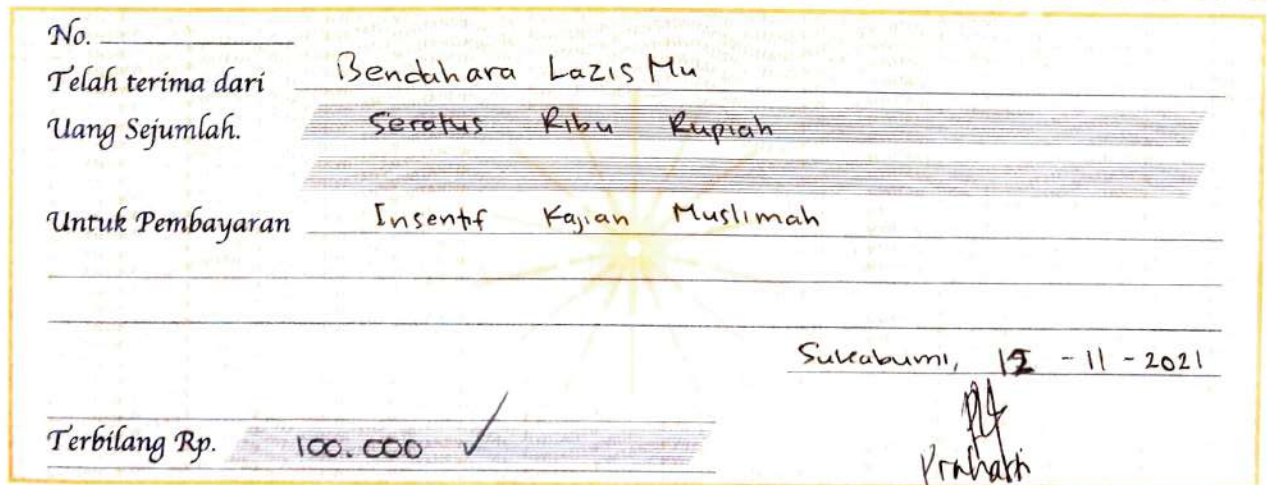 No.
Telah terima dari Bendahara Lazis Mu
Uang Sejumlah. Seratus Ribu Rupiah
Untuk Pembayaran Insentif Kajian Muslimah
Sukabumi, 12 - 11 - 2021
Terbilang Rp. 100.000